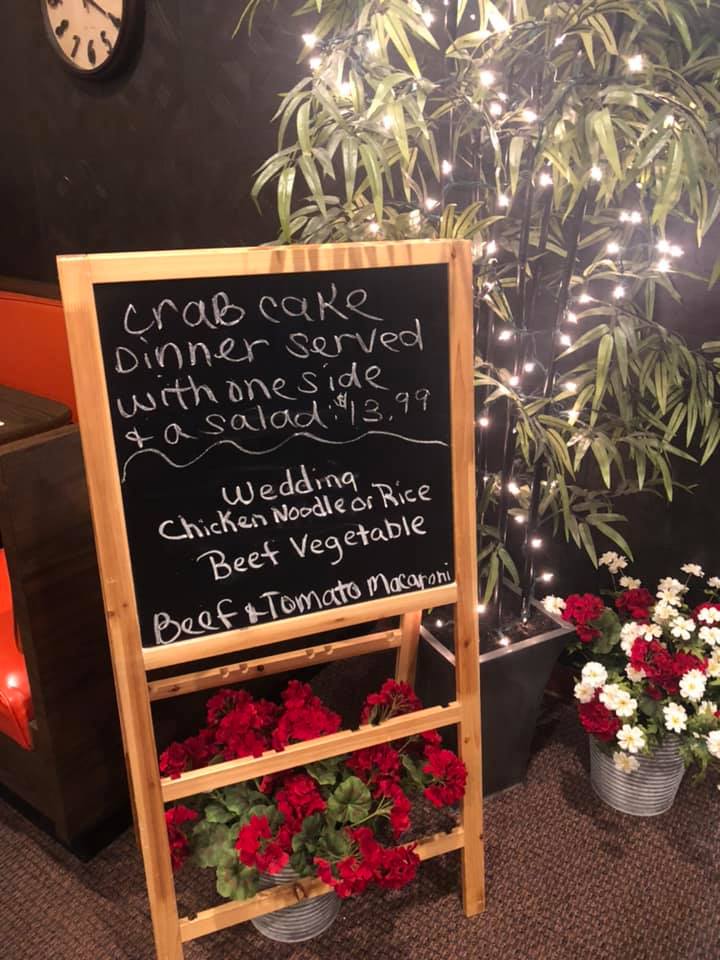 Crab cake
Dinner served
with one side
& a salad: $13.99
Wedding
Chicken Noodle or Rice
Beef Vegetable
Beef & Tomato Macaroni